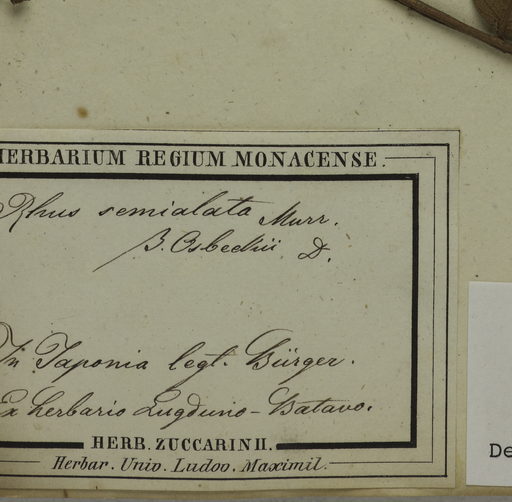 HERBARIUM REGIUM MONACENSE.
Rhus semialata Murr.
β. Osbeckii D.
In Japonia legt. Bürger.
Ex herbario Lugduno-Batavo.
HERB. ZUCCARINII.
Herbar. Univ. Ludov. Maximil.
De